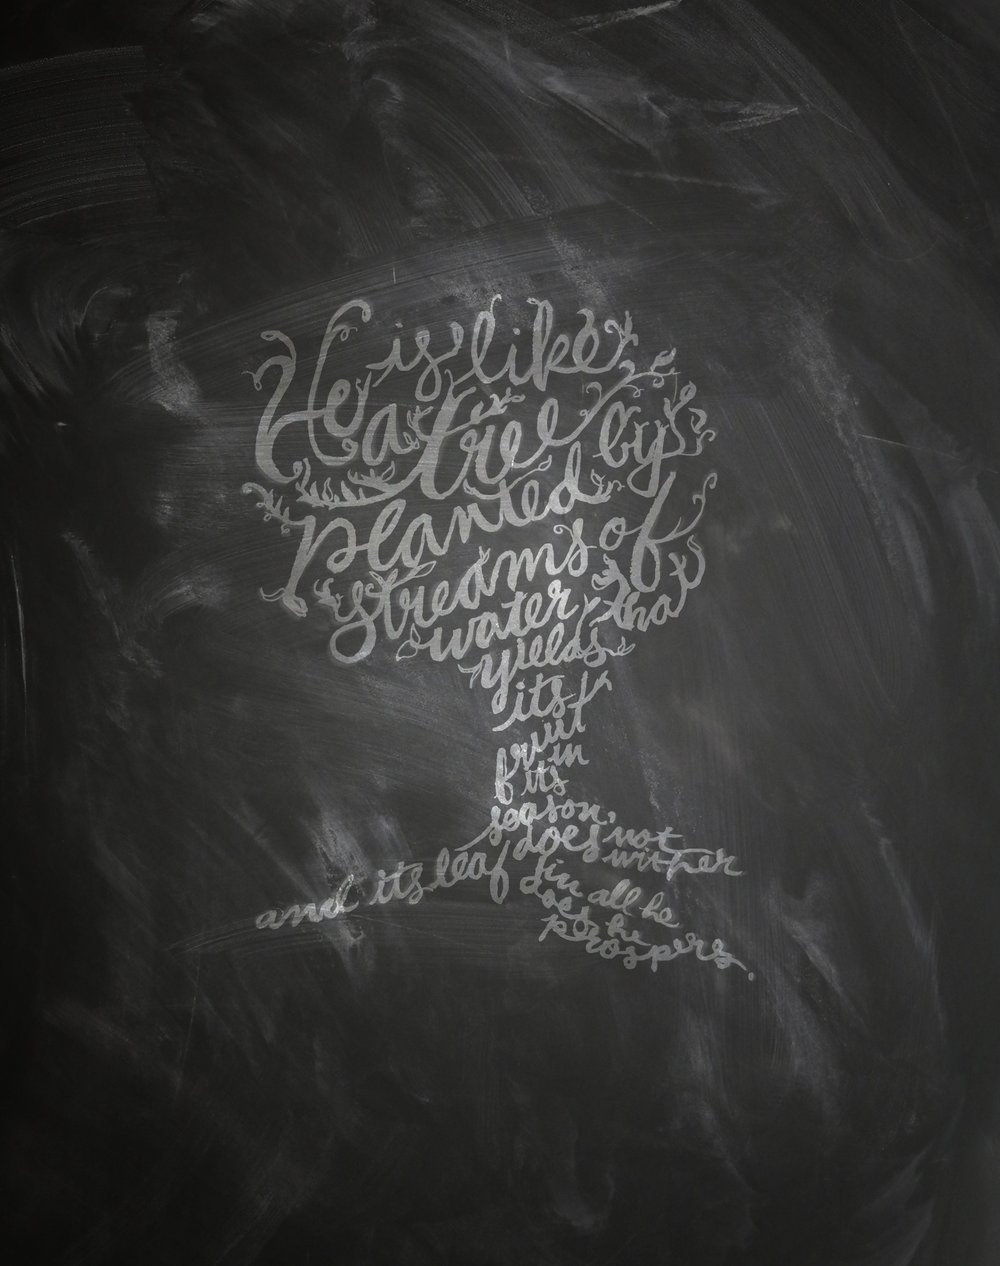 He is like
a tree
planted by
streams of
water that
yields
its
fruit
in
its
season,
and its leaf does not
wither
In all he
does he
prospers.